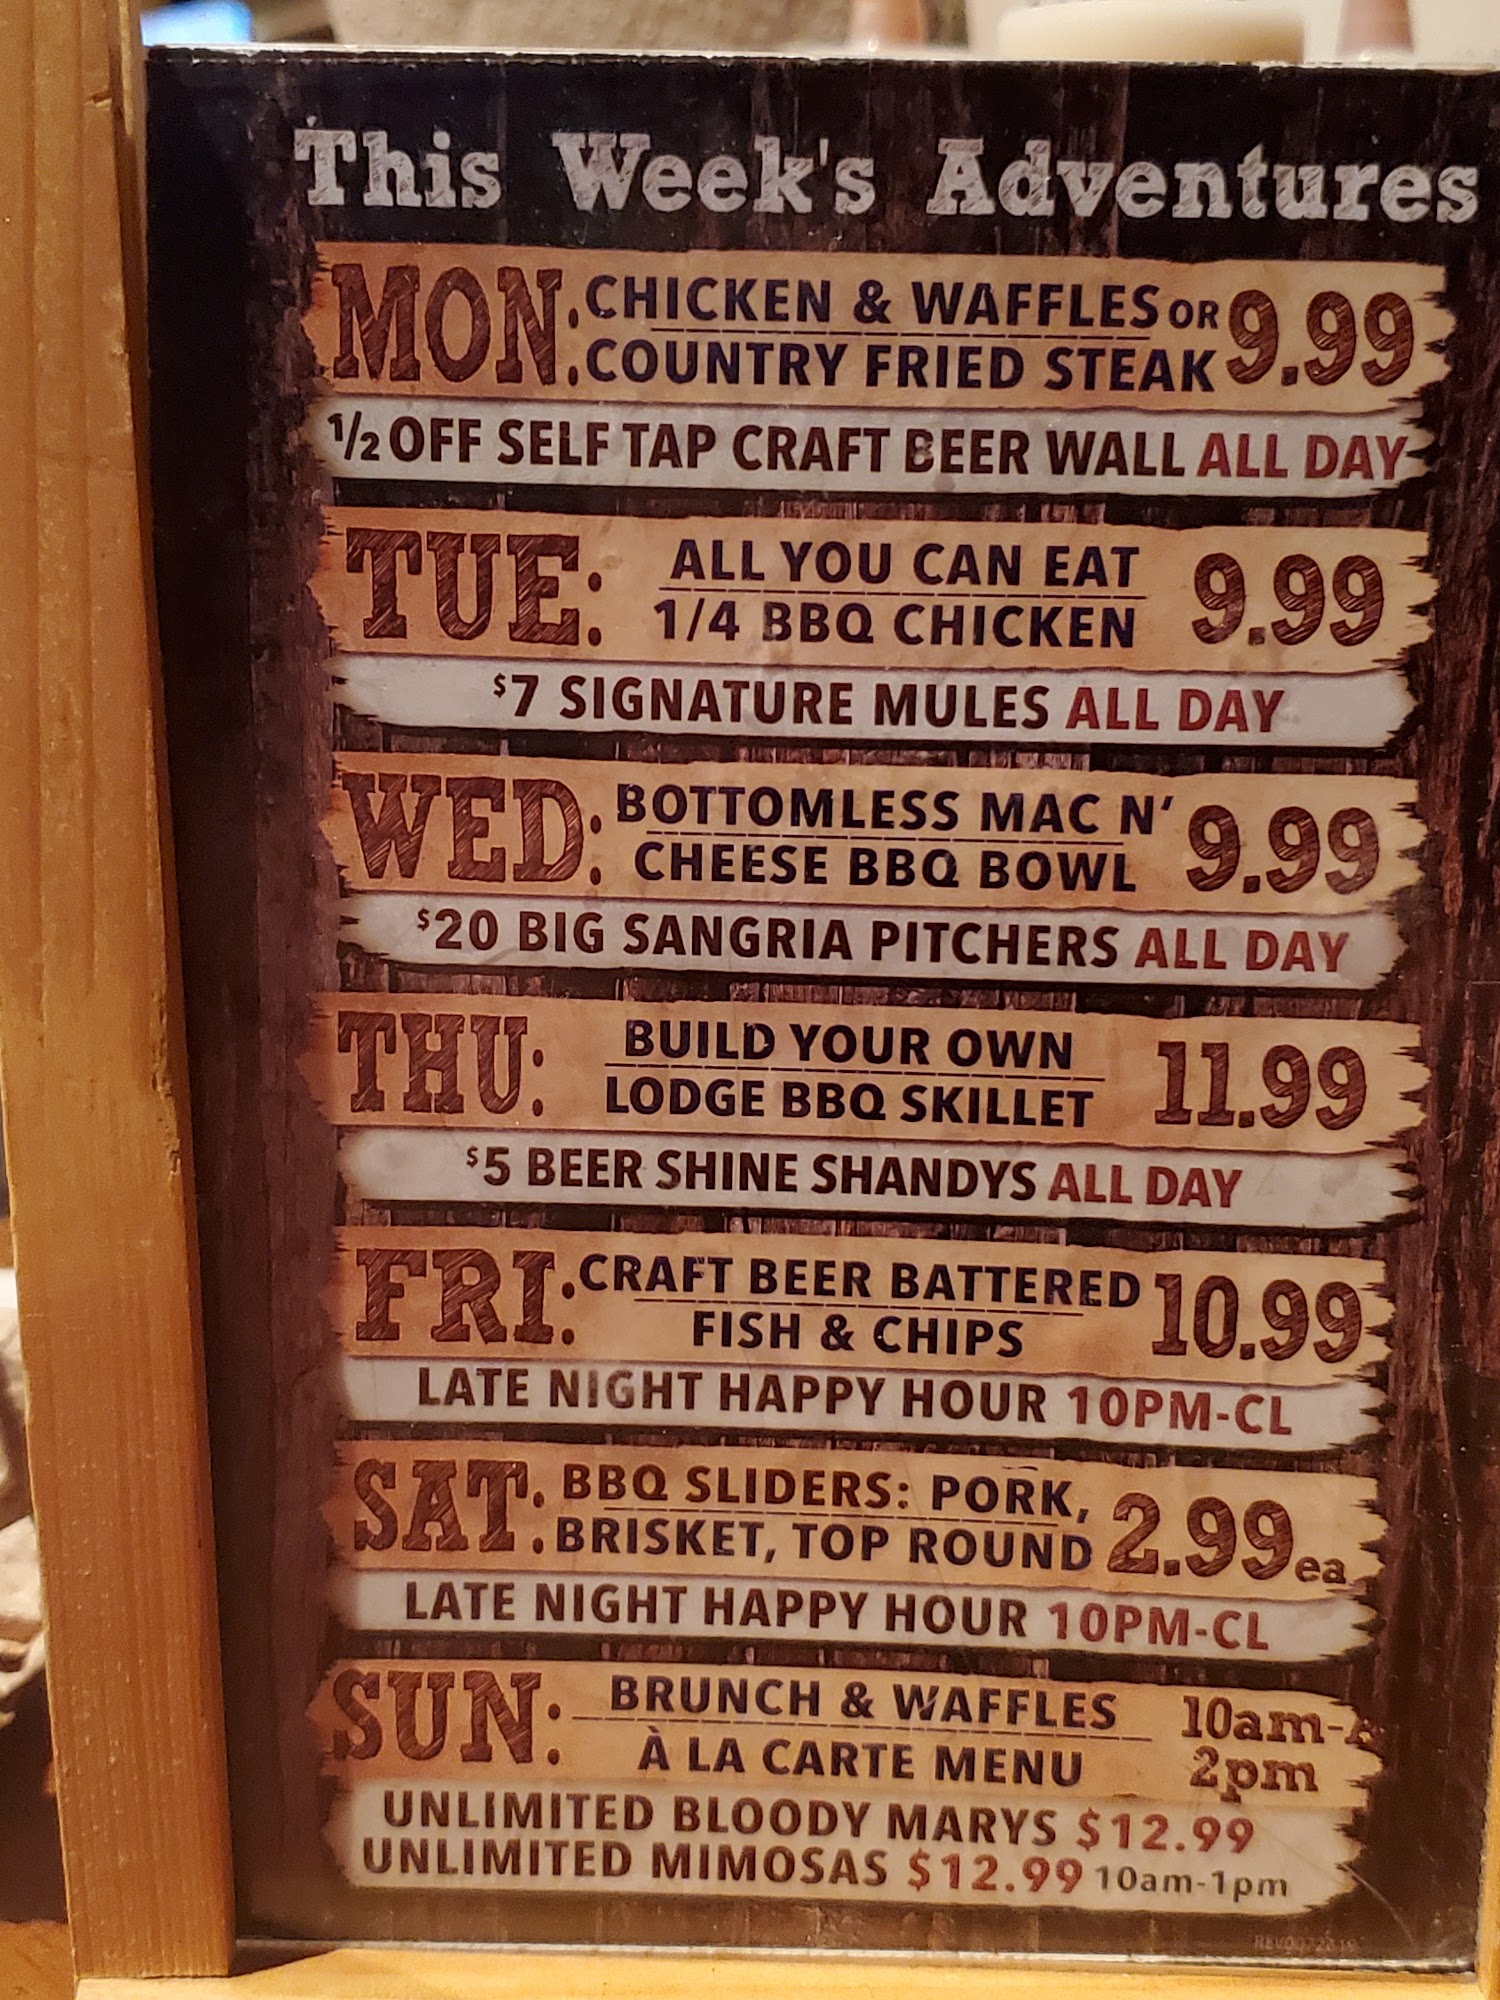 This Week's Adventures
MON: CHICKEN & WAFFLES OR 9.99
COUNTRY FRIED STEAK
½ OFF SELF TAP CRAFT BEER WALL ALL DAY
TUE: ALL YOU CAN EAT 9.99
1/4 BBQ CHICKEN
$7 SIGNATURE MULES ALL DAY
WED: BOTTOMLESS MAC N' 9.99
CHEESE BBQ BOWL
$20 BIG SANGRIA PITCHERS ALL DAY
THU: BUILD YOUR OWN 11.99
LODGE BBQ SKILLET
$5 BEER SHINE SHANDYS ALL DAY
FRI: CRAFT BEER BATTERED 10.99
FISH & CHIPS
LATE NIGHT HAPPY HOUR 10PM-CL
SAT: BBQ SLIDERS: PORK, 2.99 ea
BRISKET, TOP ROUND
LATE NIGHT HAPPY HOUR 10PM-CL
SUN: BRUNCH & WAFFLES 10am-
À LA CARTE MENU 2pm
UNLIMITED BLOODY MARYS $12.99
UNLIMITED MIMOSAS $12.99 10am-1pm